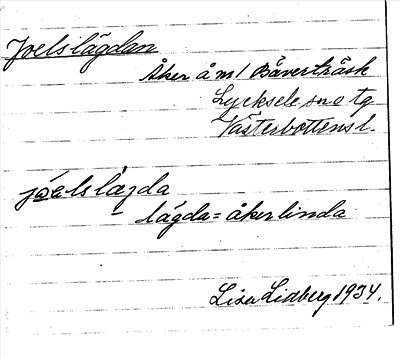 Joelslägdan
Åker å m/ Bäverträsk
Lycksele sn o tg
Västerbottens l.
jo̱els lägda
lägda = åkerlinda
Lisa Lidberg 1934.